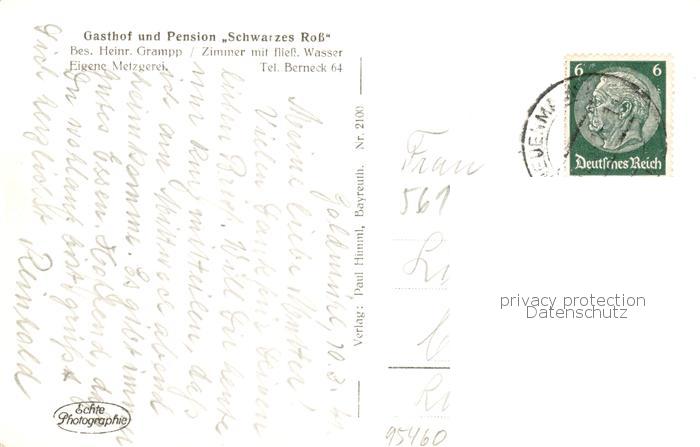 Gasthof und Pension „Schwarzes Roß“
Bes. Heinr. Grampp / Zimmer mit fließ. Wasser
Eigene Metzgerei. Tel. Berneck 64
Goldmühl, 10.3.
Meine liebe Mutter!
Vielen Dank für Deinen
lieben Brief. Will Dir heute
nur kurz mitteilen, daß
ich am Mittwoch abend
heimkomme. Es gibt immer
gutes Essen. Hoffend, daß
Du wohlauf bist grüßt
Dich herzlichst Reinhold
Echte
Photographie
Verlag: Paul Himml, Bayreuth. Nr. 2100
6 6
Deutsches Reich
NEUENMA
Frau
561
95460
privacy protection
Datenschutz